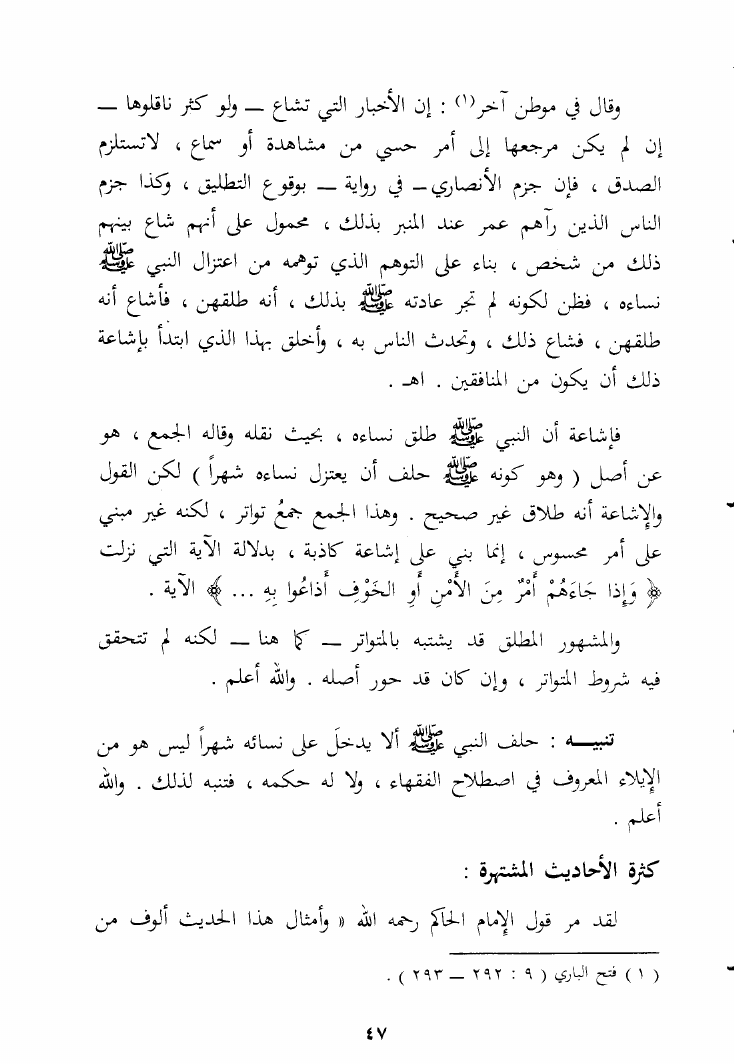 وقال في موطن آخر(١) : إن الأخبار التي تشاع — ولو كثر ناقلوها —
إن لم يكن مرجعها إلى أمر حسي من مشاهدة أو سماع ، لاتستلزم
الصدق ، فإن جزم الأنصاري — في رواية — بوقوع التطليق ، وكذا جزم
الناس الذين رآهم عمر عند المنبر بذلك ، محمول على أنهم شاع بينهم
ذلك من شخص ، بناء على التوهم الذي توهمه من اعتزال النبي ﷺ
نساءه ، فظن لكونه لم تجر عادته ﷺ بذلك ، أنه طلقهن ، فأشاع أنه
طلقهن ، فشاع ذلك ، وتحدث الناس به ، وأخلق بهذا الذي ابتدأ بإشاعة
ذلك أن يكون من المنافقين . اهـ .
فإشاعة أن النبي ﷺ طلق نساءه ، بحيث نقله وقاله الجمع ، هو
عن أصل ( وهو كونه ﷺ حلف أن يعتزل نساءه شهراً ) لكن القول
والإشاعة أنه طلاق غير صحيح . وهذا الجمع جمعُ تواتر ، لكنه غير مبني
على أمر محسوس ، إنما بني على إشاعة كاذبة ، بدلالة الآية التي نزلت
﴿ وَإِذا جَاءَهُمْ أَمْرٌ مِنَ الأَمْنِ أَوِ الخَوْفِ أَذاعُوا بِهِ ... ﴾ الآية .
والمشهور المطلق قد يشتبه بالمتواتر — كما هنا — لكنه لم تتحقق
فيه شروط المتواتر ، وإن كان قد حور أصله . والله أعلم .
تنبيـــه : حلف النبي ﷺ ألا يدخلَ على نسائه شهراً ليس هو من
الإيلاء المعروف في اصطلاح الفقهاء ، ولا له حكمه ، فتنبه لذلك . والله
أعلم .
كثرة الأحاديث المشتهرة :
لقد مر قول الإمام الحاكم رحمه الله « وأمثال هذا الحديث ألوف من
( ١ ) فتح الباري ( ٩ : ٢٩٢ — ٢٩٣ ) .
٤٧